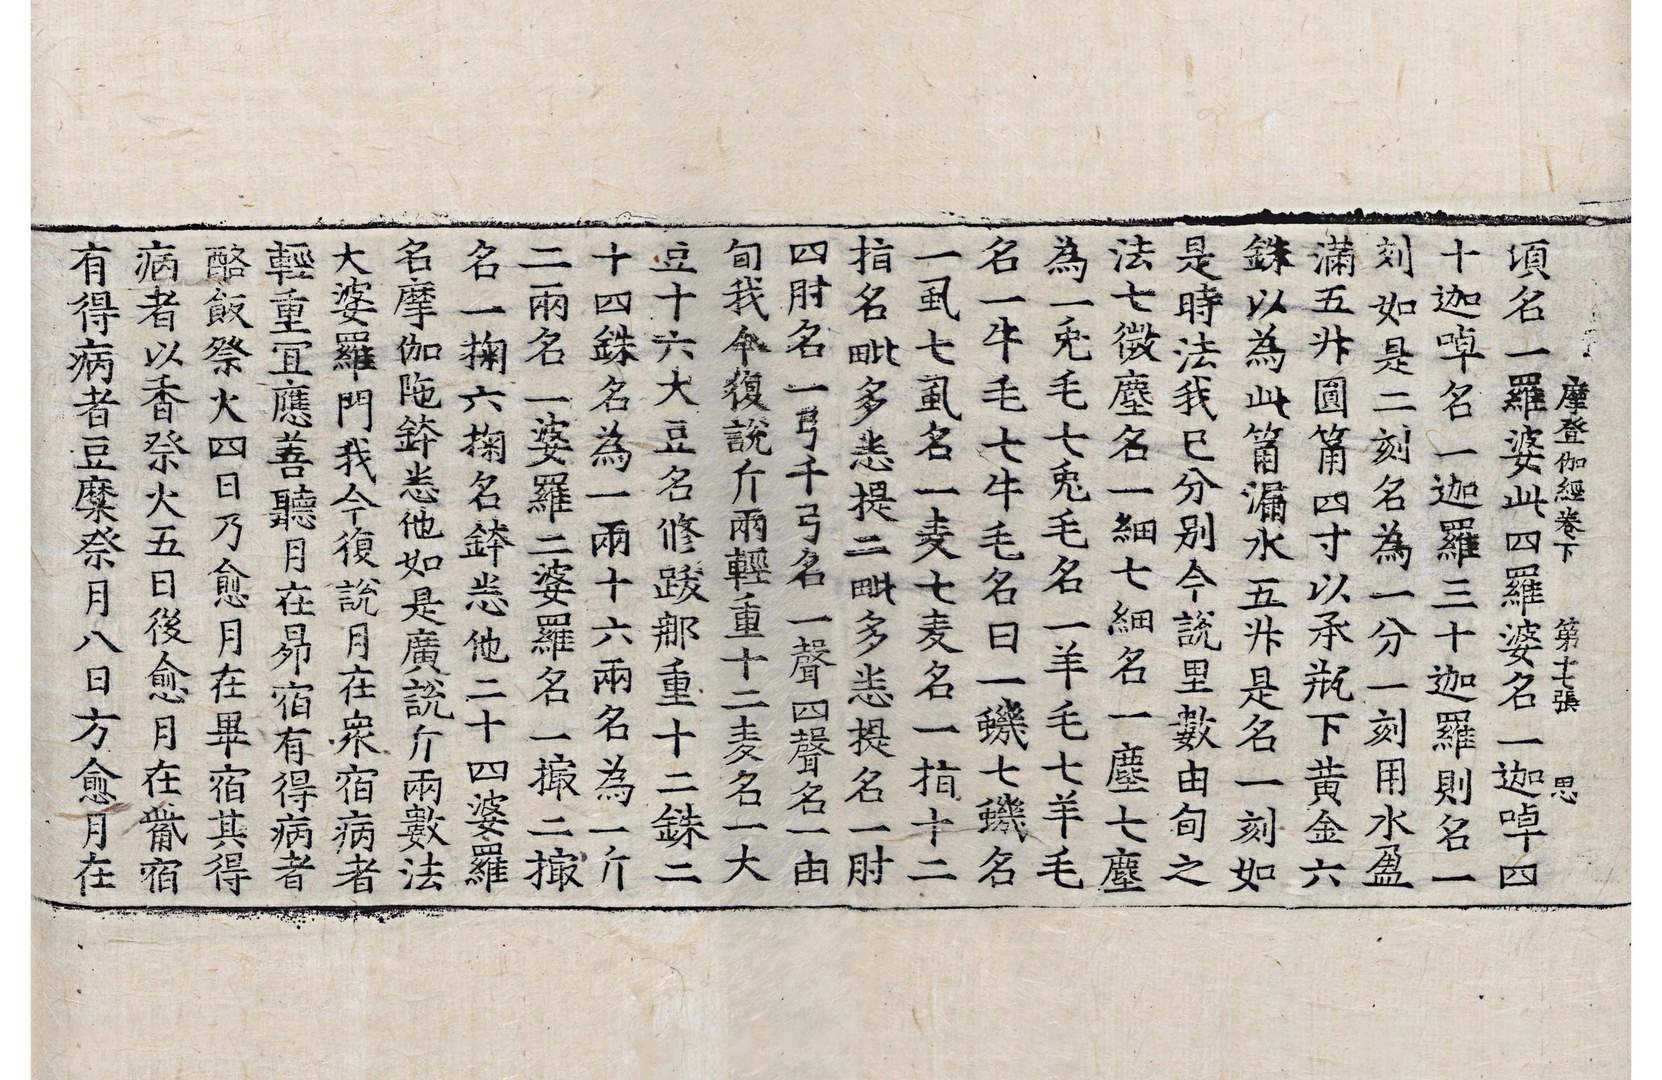 摩登伽經卷下　第十七張　思
頃名一羅婆此四羅婆名一迦啅四
十迦啅名一迦羅三十迦羅則名一
刻如是二刻名為一分一刻用水盈
滿五升圓筩四寸以承瓶下黄金六
銖以為此筩漏水五升是名一刻如
是時法我已分别今說里數由旬之
法七微塵名一細七細名一塵七塵
為一兎毛七兎毛名一羊毛七羊毛
名一牛毛七牛毛名曰一蟣七蟣名
一虱七虱名一麦七麦名一指十二
指名毗多悉提二毗多悉提名一肘
四肘名一弓千弓名一聲四聲名一由
旬我今復說斤兩輕重十二麦名一大
豆十六大豆名修跋那重十二銖二
十四銖名為一兩十六兩名為一斤
二兩名一婆羅二婆羅名一撮二撮
名一掬六掬名鉢悉他二十四婆羅
名摩伽陁鉢悉他如是廣說斤兩數法
大婆羅門我今復說月在衆宿病者
輕重冝應善聽月在昴宿有得病者
酪飯祭火四日乃愈月在畢宿其得
病者以香祭火五日後愈月在觜宿
有得病者豆糜祭月八日方愈月在